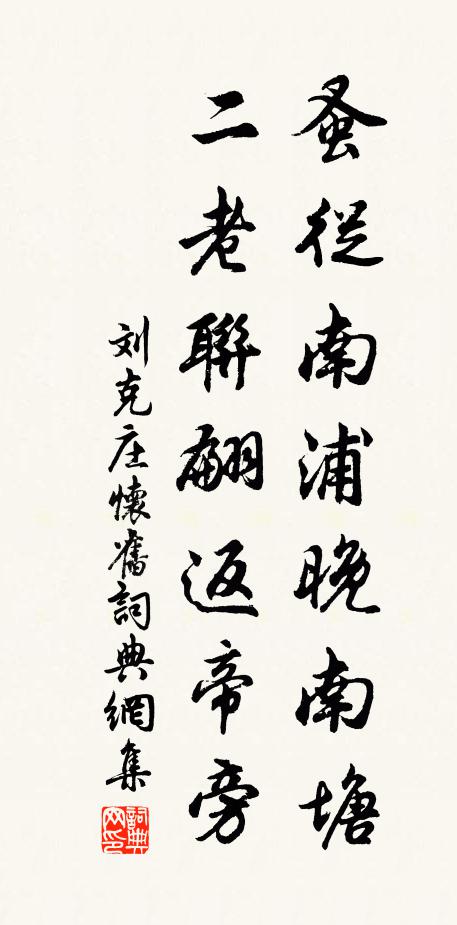 蚤從南浦晚南塘
二老聯翩返帝旁
刘克庄懷舊詞典網集
詞典網印